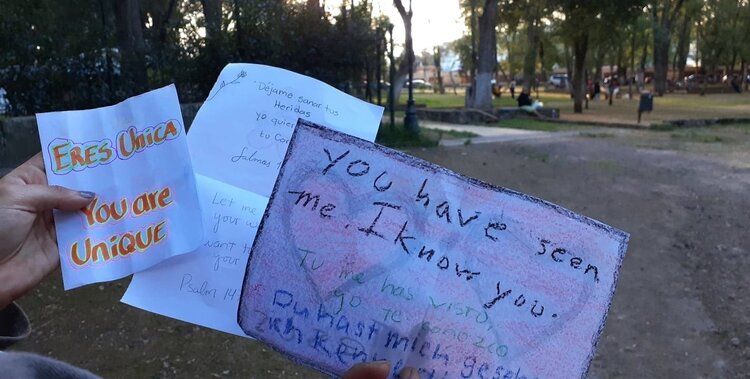 ERES UNICA
YOU are
UNIQUE
Déjame sanar tus
Heridas
Yo
tu
Salmos
Let me
your
want to
your
Psalm 14
You have seen
me. I know you.
Tu me has visto,
yo te conozco
Du hast mich gesehen
Ich kenne